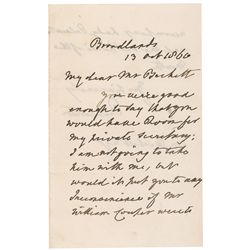 Broadlands
13 Oct 1860
My dear Mr Beckett
you were good
enough to say that you
would have Room for
my private Secretary;
I am not going to take
him with me, but
would it put you to any
Inconvenience if Mr
William Cowper were to